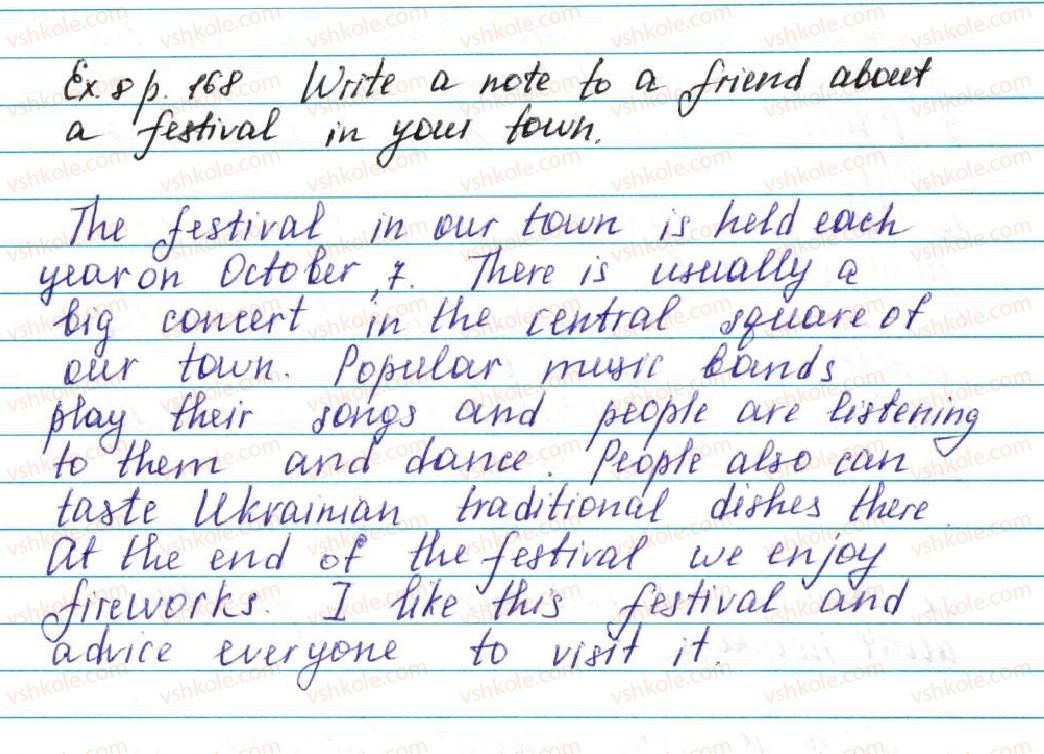 Ex. 8 p. 168 Write a note to a friend about
a festival in your town.
The festival in our town is held each
year on October, 7. There is usually a
big concert in the central square of
our town. Popular music bands
play their songs and people are listening
to them and dance. People also can
taste Ukrainian traditional dishes there.
At the end of the festival we enjoy
fireworks. I like this festival and
advice everyone to visit it.